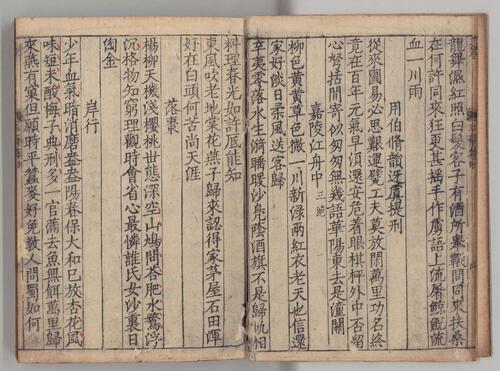 龍驤儼紅照白鬚客子有酒所無問同來扶桑
在何許同來狂更甚搖手作廣語上流屠鯨鯢流
血一川雨
用伯脩韻迓虞提刑
從來圖易必思艱運甓工夫莫放閑萬里功名終
竟在百年元氣早須還安危着眼棋枰外中否留
心弩括間寄似匆匆無幾語華陽東去是潼關
嘉陵江舟中三絶
柳色黃黃草色微一川新淥兩紅衣老天也信還
家好淡日柔風送客歸
辛夷零落水生漪晴暖沙鳧蔭酒旗不是歸帆怕
料理春光如許底能知
東風吹老地棠花燕子歸來認得家茅屋石田渾
好在白頭何苦尚天涯
落棗
楊柳天機淺櫻桃世態深空山鳩問荅肥水鷺浮
沉格物知窮理觀時會省心最憐誰氏女沙裏日
淘金
岸行
少年血氣暗消磨盎盎陽春保大和已放杏花風
味短未酸梅子典刑多一官滿去魚無餌萬里歸
來燕有窠但願時平蠶麥好免教人問蜀如何